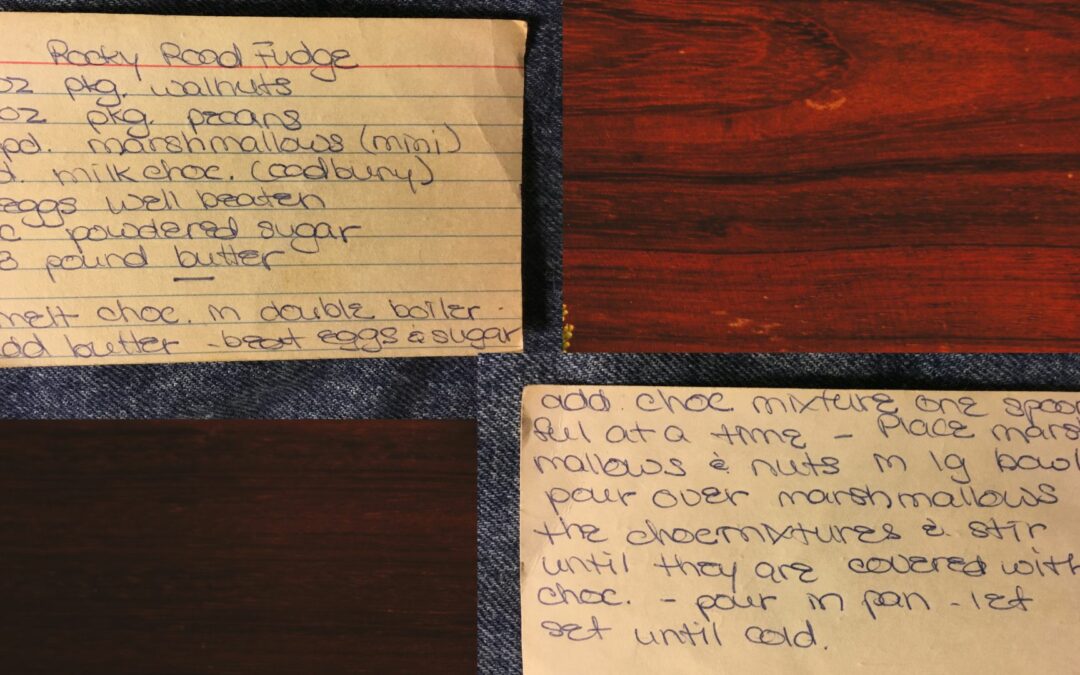 Rocky Road Fudge
oz pkg. walnuts
oz pkg. pecans
pd. marshmallows (mini)
d. milk choc. (cadbury)
eggs well beaten
c powdered sugar
3 pound butter
melt choc. in double boiler -
dd butter - beat eggs & sugar
add choc mixture one spoon
ful at a time - Place marsh
mallows & nuts in lg bowl
pour over marshmallows
the choc mixtures & stir
until they are covered with
choc. - pour in pan - let
set until cold.